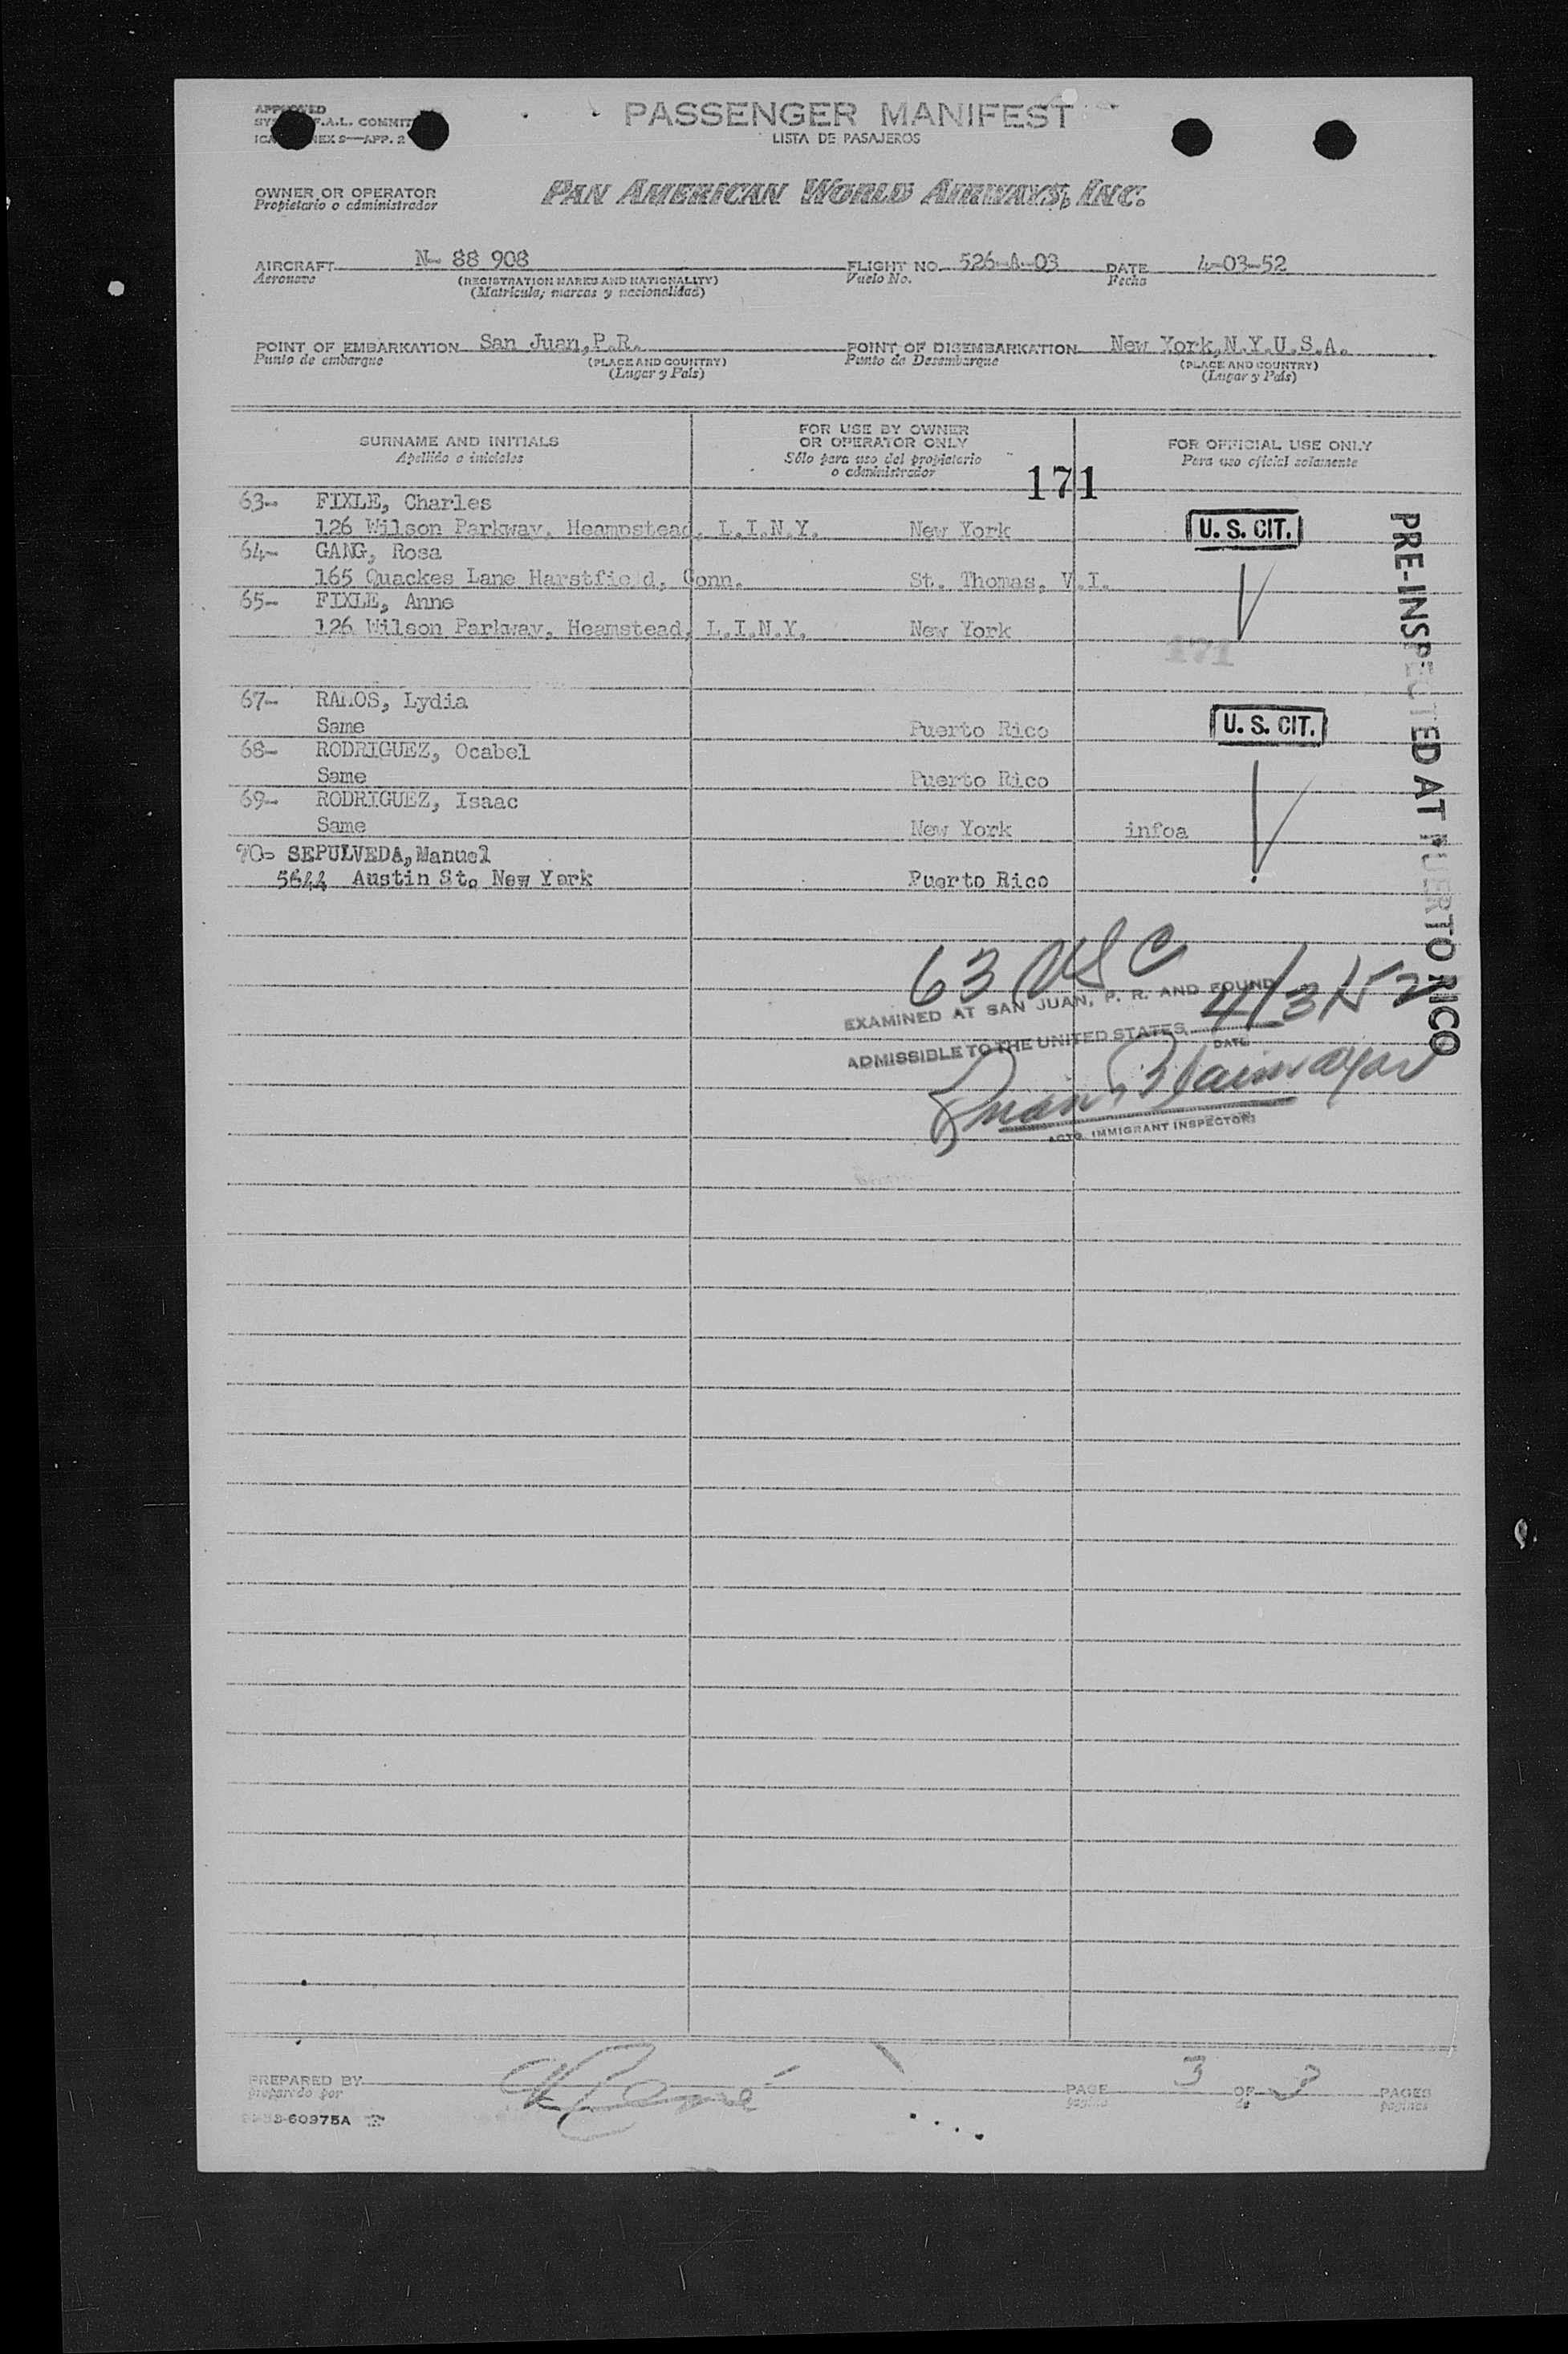 APPROVED
F.A.L. COMMIT
NEX 9—APP. 2
PASSENGER MANIFEST
LISTA DE PASAJEROS
OWNER OR OPERATOR
Propietario o administrador
PAN AMERICAN WORLD AIRWAYS, INC.
AIRCRAFT N- 88 908 FLIGHT NO. 526-A-03 DATE 4-03-52
Aeronave (REGISTRATION MARKS AND NATIONALITY) Vuelo No. Fecha
(Matricula, marcas y nacionalidad)
POINT OF EMBARKATION San Juan,P.R. POINT OF DISEMBARKATION New York,N.Y.U.S.A.
Punto de embarque (PLACE AND COUNTRY) Punto de Desembarque (PLACE AND COUNTRY)
(Lugar y País) (Lugar y País)
SURNAME AND INITIALS
Apellido e iniciales
FOR USE BY OWNER
OR OPERATOR ONLY
Sólo para uso del propietario
o administrador
FOR OFFICIAL USE ONLY
Para uso oficial solamente
171
63- FIXLE, Charles
126 Wilson Parkway, Heampstead, L.I.N.Y. New York U. S. CIT.
64- GANG, Rosa
165 Quackes Lane Harstfield, Conn. St. Thomas, V.I.
65- FIXLE, Anne
126 Wilson Parkway, Heamstead, L.I.N.Y. New York
171
67- RAMOS, Lydia
Same Puerto Rico U. S. CIT.
68- RODRIGUEZ, Ocabel
Same Puerto Rico
69- RODRIGUEZ, Isaac
Same New York infoa
70- SEPULVEDA,Manuel
5644 Austin St. New York Puerto Rico
PRE-INSPECTED AT PUERTO RICO
63 USC
EXAMINED AT SAN JUAN, P. R. AND FOUND
ADMISSIBLE TO THE UNITED STATES 4/3/52
DATE
Juan
ACTG. IMMIGRANT INSPECTOR
PREPARED BY PAGE 3 OF 3 PAGES
preparado por página de páginas
60975A